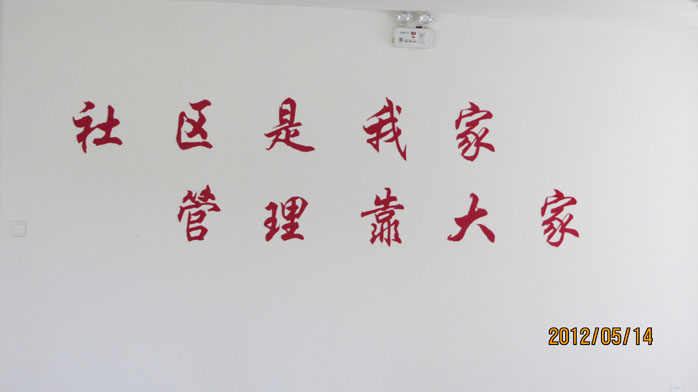 社区是我家
管理靠大家
2012/05/14